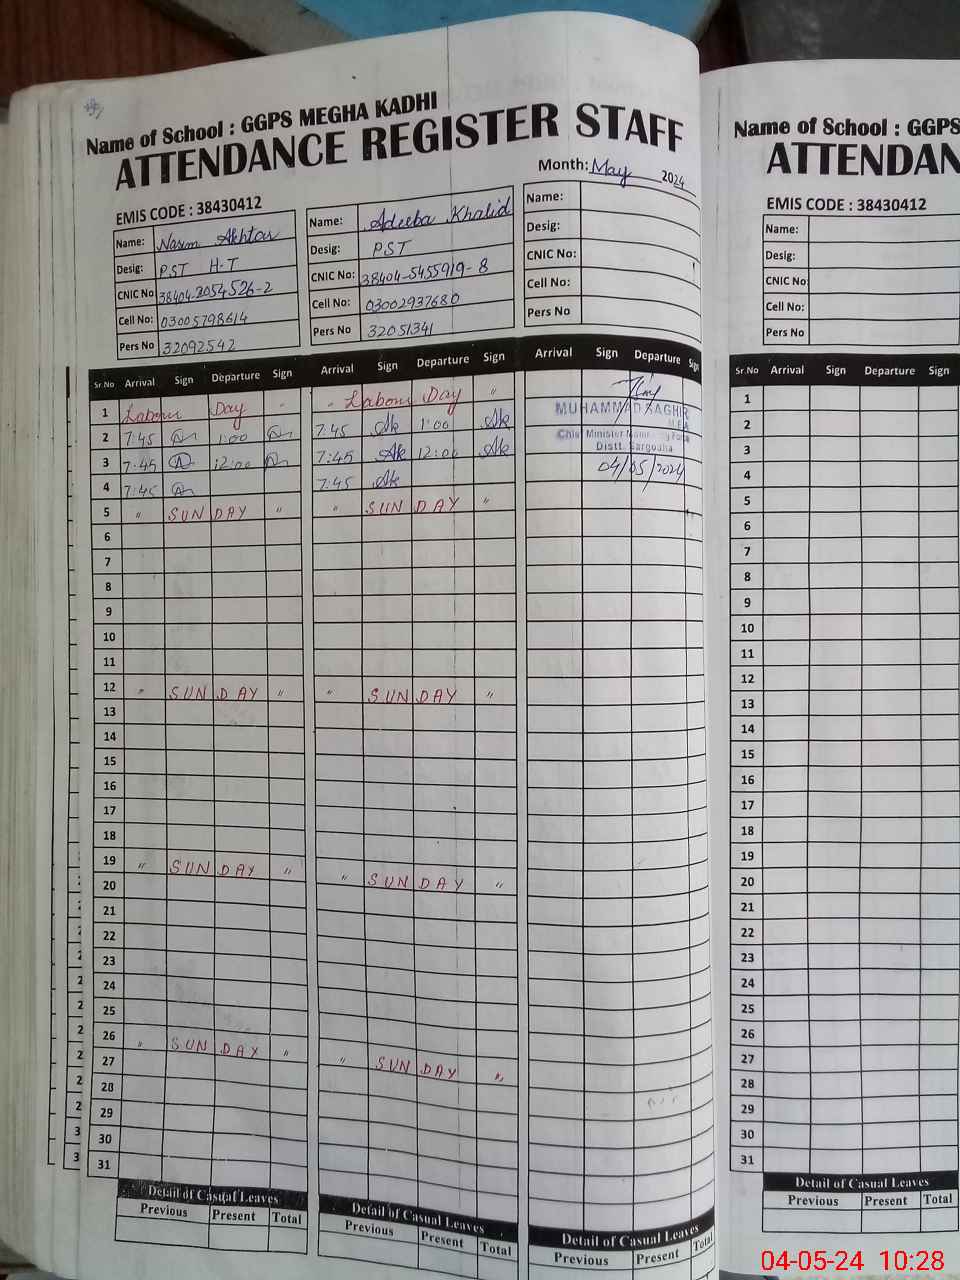 Name of School : GGPS MEGHA KADHI
ATTENDANCE REGISTER STAFF
Month: May 2024
EMIS CODE : 38430412
Name: Nasim Akhtar
Desig: PST H-T
CNIC No 38404-3054526-2
Cell No: 03005798614
Pers No 32092542
Name: Adeeba Khalid
Desig: PST
CNIC No: 38404-5455919-8
Cell No: 03002937680
Pers No 32051341
Name:
Desig:
CNIC No:
Cell No:
Pers No
Sr.No Arrival Sign Departure Sign Arrival Sign Departure Sign Arrival Sign Departure Sign
1 Labour Day " " Labour Day "
2 7:45 1:00 7:45 Ak 1:00 Ak
3 7:45 12:00 7:45 Ak 12:00 Ak
4 7:45 7:45 Ak
5 " SUNDAY " " SUNDAY "
6
7
8
9
10
11
12 " SUNDAY " " SUNDAY "
13
14
15
16
17
18
19 " SUNDAY " " SUNDAY "
20
21
22
23
24
25
26 " SUNDAY " " SUNDAY "
27
28
29
30
31
MUHAMMAD SAGHIR
M.E.A
Chief Minister Monitoring Force
Distt. Sargodha
04/05/2024
Detail of Casual Leaves
Previous Present Total
Detail of Casual Leaves
Previous Present Total
Detail of Casual Leaves
Previous Present Total
Name of School : GGPS
ATTENDAN
EMIS CODE : 38430412
Name:
Desig:
CNIC No:
Cell No:
Pers No
Sr.No Arrival Sign Departure Sign
1
2
3
4
5
6
7
8
9
10
11
12
13
14
15
16
17
18
19
20
21
22
23
24
25
26
27
28
29
30
31
Detail of Casual Leaves
Previous Present Total
04-05-24 10:28